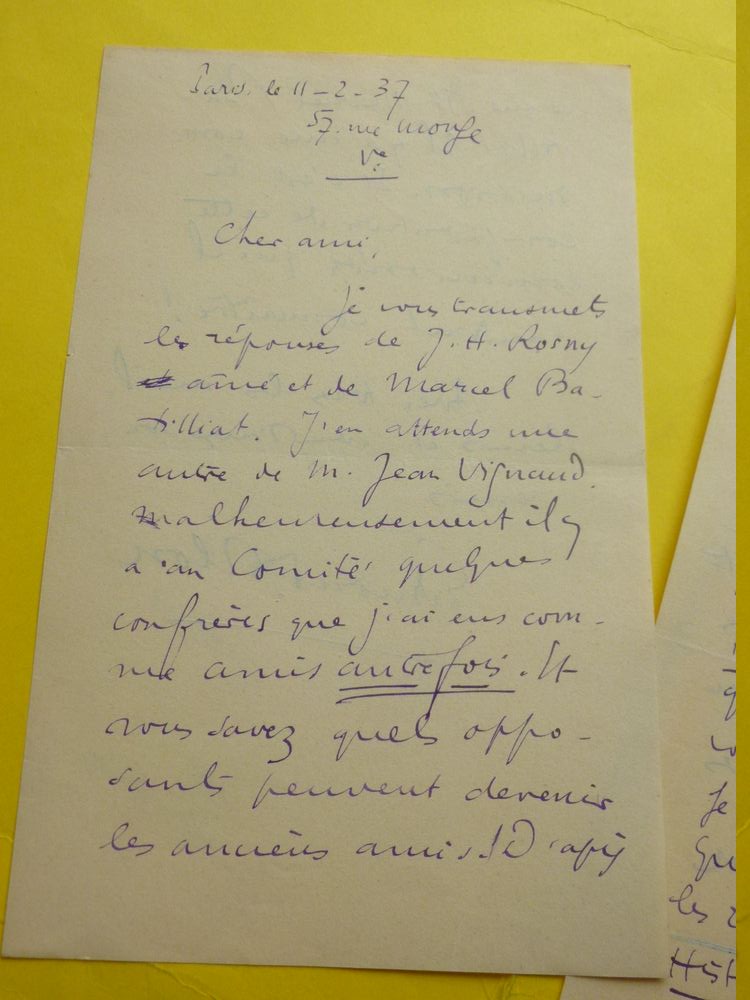 Paris. le 11-2-37
57. rue Monge
Ve
Cher ami,
je vous transmets
les réponses de J. H. Rosny
aîné et de Marcel Ba-
tilliat. J'en attends une
autre de M. Jean Vignaud.
Malheureusement il y
a au Comité quelques
confrères que j'ai eus com-
me amis autrefois. Et
vous savez quels oppo-
sants peuvent devenir
les anciens amis! D'après
Je
les